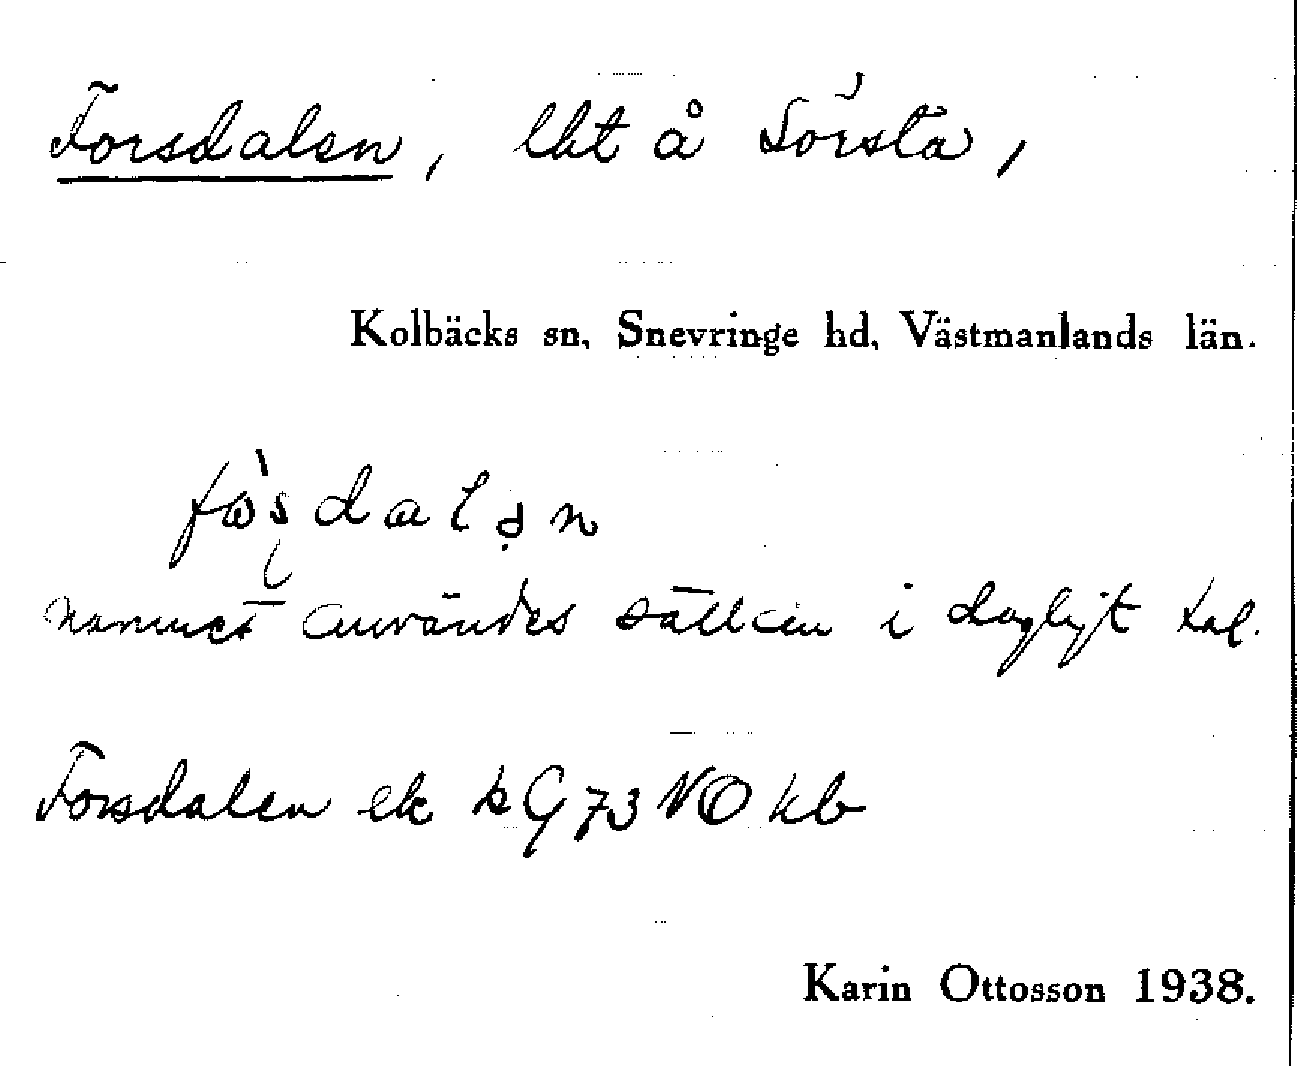 Forsdalen, lht å Sörsta,
Kolbäcks sn, Snevringe hd, Västmanlands län.
namnet användes sällan i dagligt tal.
Forsdalen ek kG73NO kb
Karin Ottosson 1938.